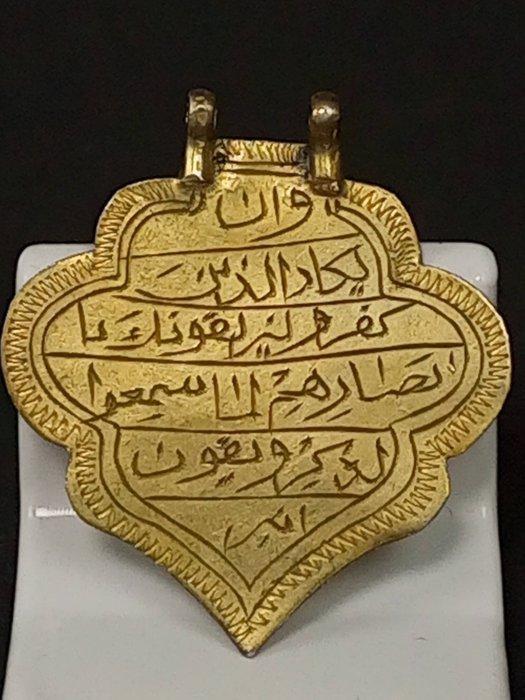 وان
يكاد الذين
كفرو ليزلقونك با
بصارهم لما سمعوا
الذكر و يقون
انه